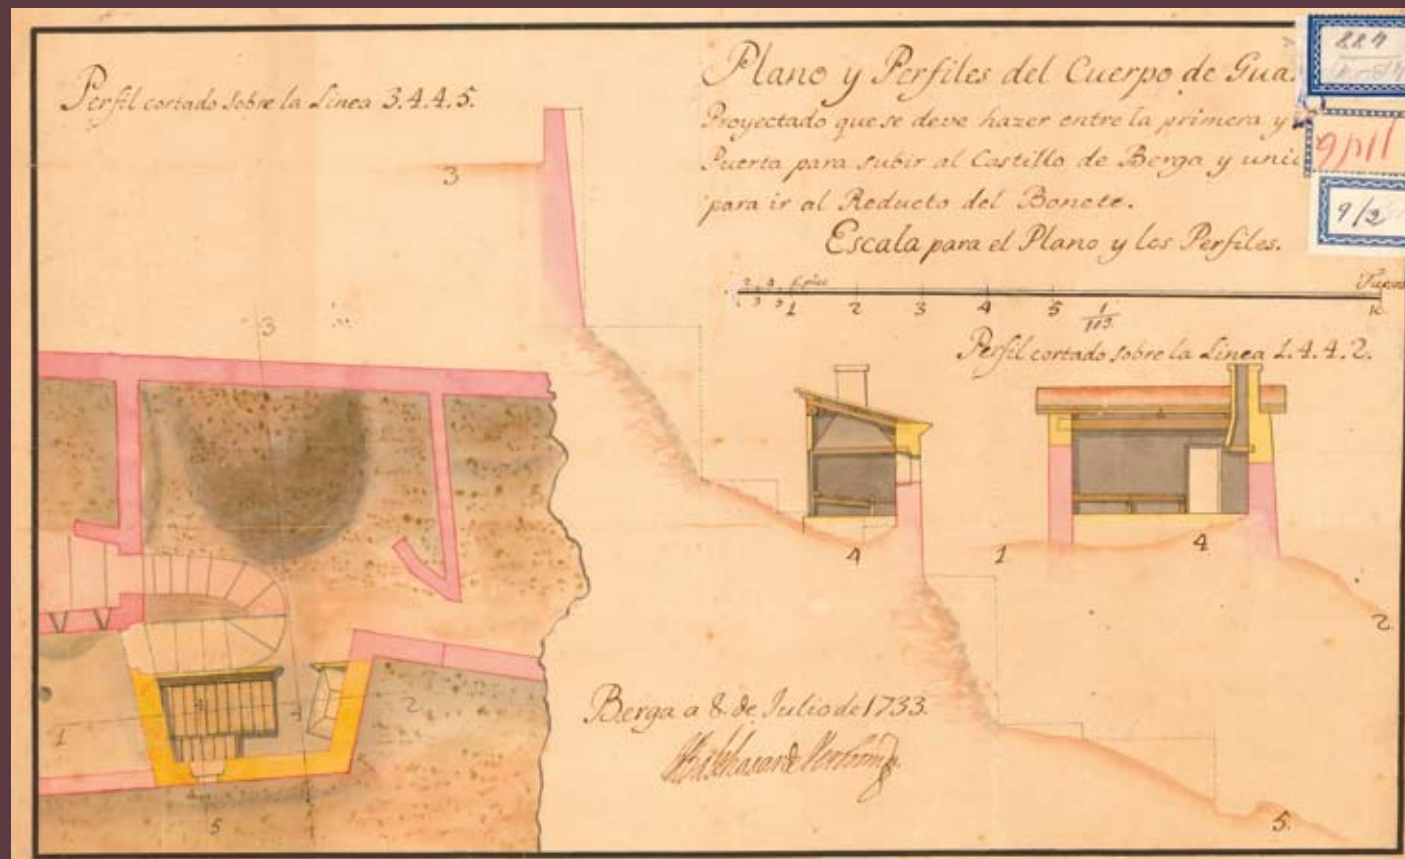 Perfil cortado sobre la Linea 3.4.4.5.
Plano y Perfiles del Cuerpo de Gua
Proyectado que se deve hazer entre la primera y
Puerta para subir al Castillo de Berga y unic
para ir al Reducto del Bonete.
Escala para el Plano y los Perfiles.
1 2 3 4 5
Perfil cortado sobre la Linea 1.4.4.2.
3
3
4
1
4
2
4
4
2
1
5
5.
Berga a 8. de Julio de 1733.
9/2